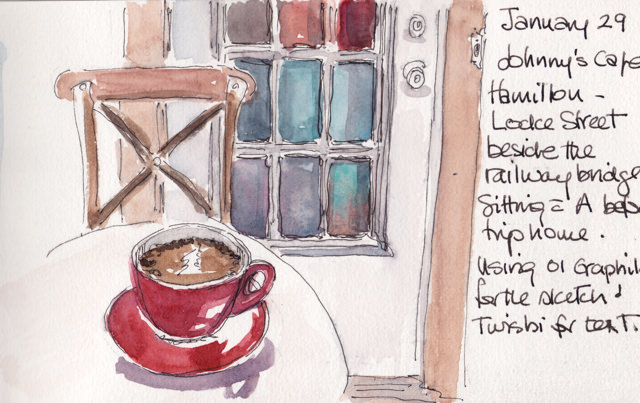 January 29
Johnny's Cafe
Hamilton -
Locke Street
beside the
railway bridge
Sitting = A
trip home.
Using 01 Graphik
for the sketch &
Twisbi for text.